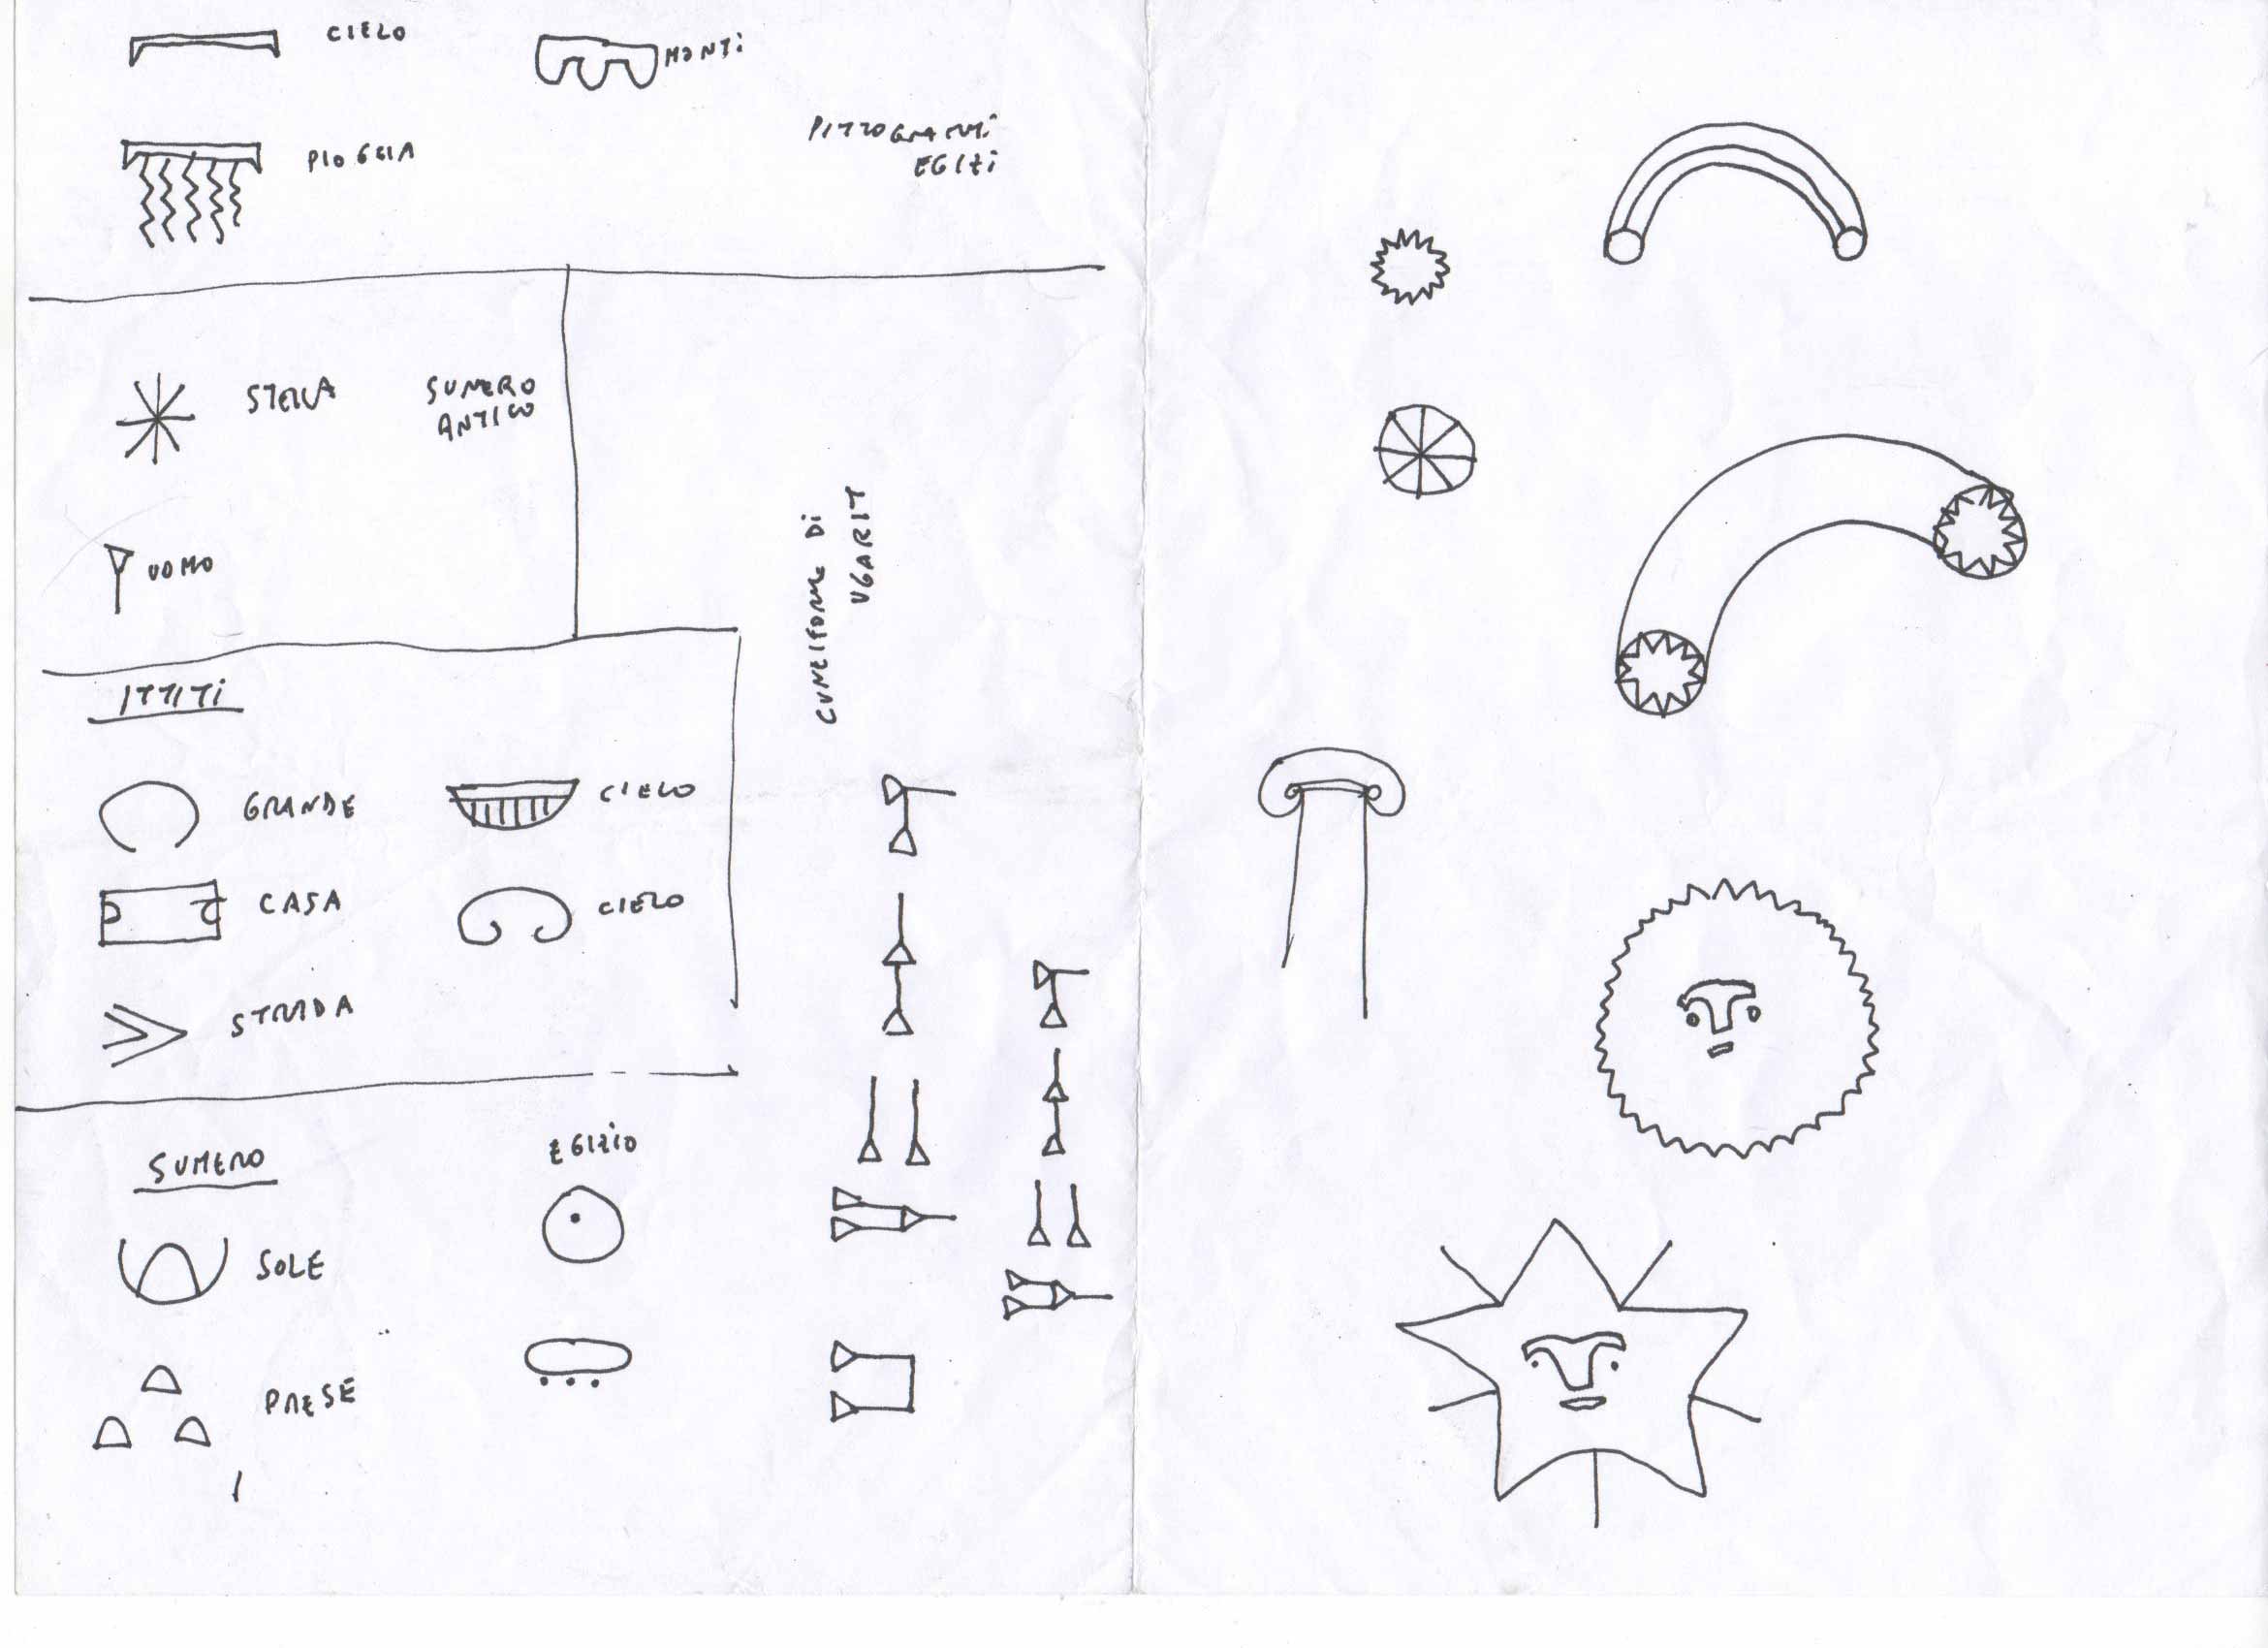 CIELO
MONTi
PIOGGIA
PITTOGRAMMi
EGIZi
STELLA
SUMERO
ANTICO
UOMO
CUNEIFORME Di
UGARIT
ITTITi
GRANDE
CIELO
CASA
CIELO
STRADA
SUMERO
EGIZIO
SOLE
PAESE